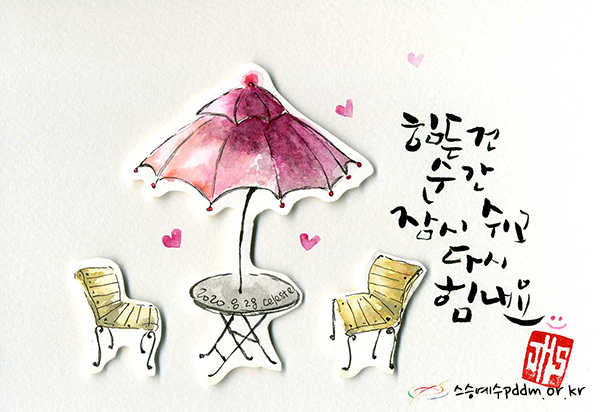 힘든 건
순간
잠시 쉬고
다시
힘내요
2020.8.28 celeste
JHS
스승예수pddm.or.kr